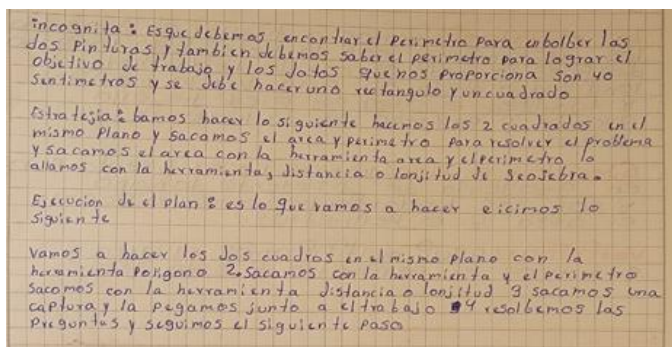 incognita: Esque debemos encontrar el Perimetro Para enbolber las
dos Pinturas, y tambien debemos saber el perimetro para lograr el
objetivo de trabajo y los datos que nos proporciona son 40
Sentimetros y se debe hacer uno rectangulo y un cuadrado
Estratejia: bamos hacer lo siguiente hacemos los 2 cuadrados en el
mismo Plano y sacamos el area y perimetro para resolver el problema
y sacamos el area con la herramienta area y el perimetro lo
allamos con la herramienta, distancia o lonjitud de Seosebra.
Ejecucion de el plan: es lo que vamos a hacer e icimos lo
siguiente
vamos a hacer los dos cuadros en el mismo plano con la
herramienta Poligono 2. Sacamos con la herramienta y el perimetro
sacomos con la herramienta distancia o lonjitud 3 sacamos una
captura y la pegamos junto a el trabajo 4 resolbemos las
Preguntas y seguimos el siguiente paso